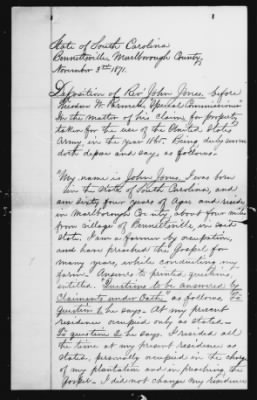 State of South Carolina
Bennettsville, Marlborough County,
November 3rd 1871.
Deposition of Rev John Jones, before
Theodor W. Parmele, "Special Commissioner"
In the matter of his claim for property
taken for the use of the United States
Army, in the year 1865. Being duly sworn
doth depose and say, as follows:
"My name is John Jones. I was born
in the State of South Carolina, and
am sixty four years of Age; and reside
in Marlborough County, about four miles
from village of Bennettsville, in said
State. I am a farmer by occupation,
and have preached the Gospel for
many years, while conducting my
farm. Answer to printed questions,
entitled "Questions to be answered by
Claimants under Oath" as follows, To
Question 1 he says. At my present
residence occupied only as stated—
To question 2 he says. I resided all
the time at my present residence as
stated, personally occupied in the charge
of my plantation and in preaching the
Gospel. I did not change my residence